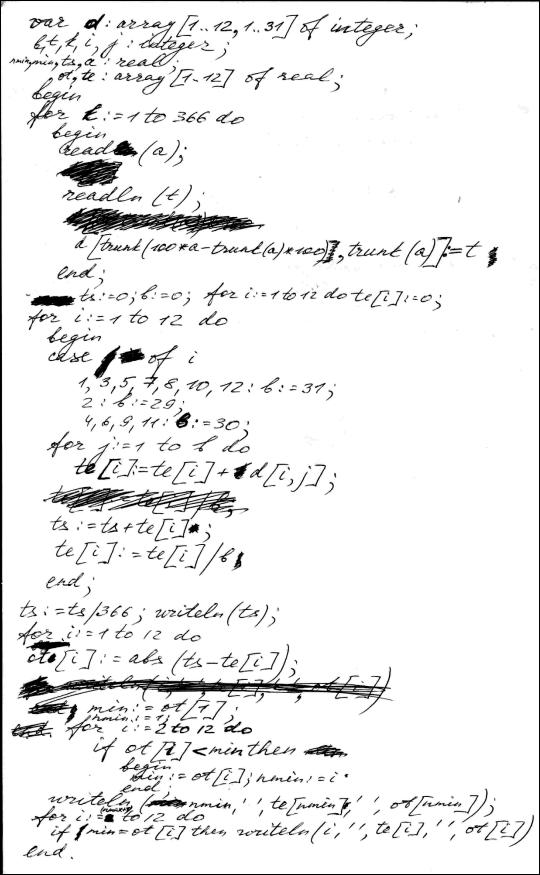 var d: array [1..12, 1..31] of integer;
b, t, k, i, j : integer;
nmin, min, ts, a : real;
ot, te : array [1..12] of real;
begin
for k:=1 to 366 do
begin
read (a);
readln (t);
d [trunk (100*a-trunk(a)*100)], trunk (a)]:=t;
end;
ts:=0; b:=0; for i:=1 to 12 do te[i]:=0;
for i:=1 to 12 do
begin
case of i
1, 3, 5, 7, 8, 10, 12: b:=31;
2: b:=29;
4, 6, 9, 11: b:=30;
for j:=1 to b do
te [i]:=te [i] + d [i, j];
ts:=ts+te[i];
te [i]:=te [i] / b;
end;
ts:=ts/366; writeln (ts);
for i:=1 to 12 do
ot [i]:= abs (ts-te[i]);
min:= ot [1];
nmin:=1;
for i:=2 to 12 do
if ot [i] < min then
begin
min:= ot [i]; nmin:=i
end;
writeln (nmin,' ', te[nmin],' ', ot [nmin]);
for i:= to 12 do
if min=ot [i] then writeln (i,' ', te[i],' ', ot [i])
end.